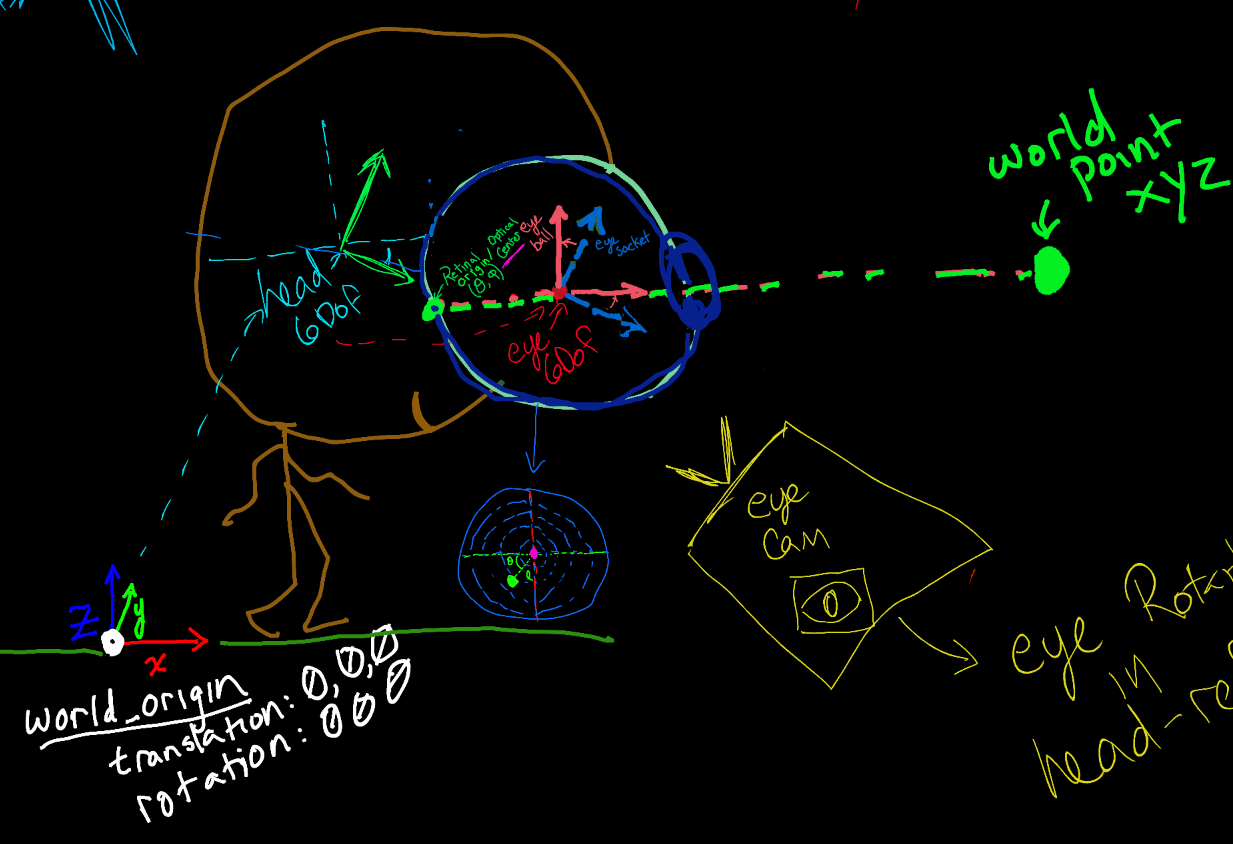 world
point
xyz
Retinal
origin/Optical
Center
(θ,φ)
eye
ball
eye
socket
head
6DoF
eye
6DoF
eye
Cam
eye
in
head-re
z
y
x
world_origin
translation: 0,0,0
rotation: 0 0 0